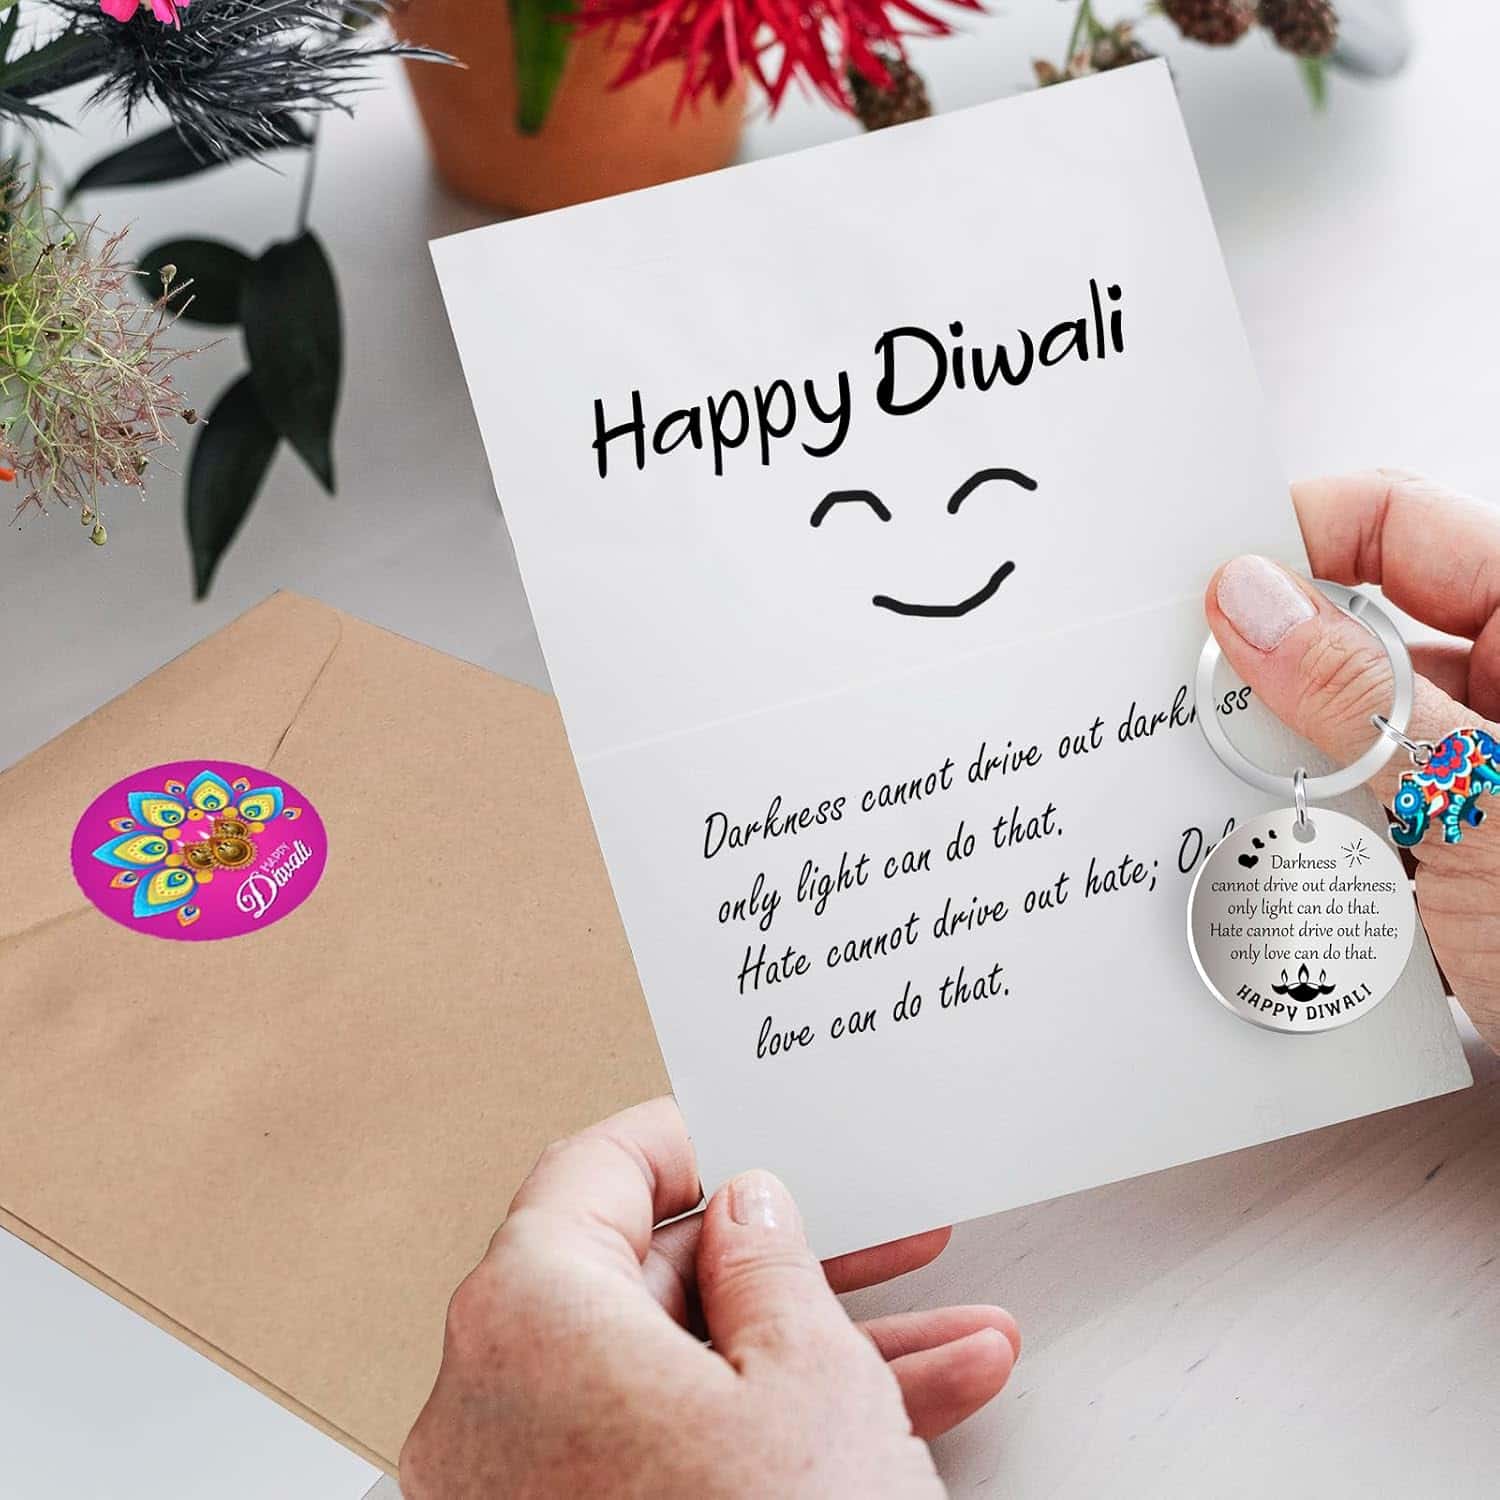 Happy Diwali
Darkness cannot drive out darkness
only light can do that.
Hate cannot drive out hate;
love can do that.
Darkness
cannot drive out darkness;
only light can do that.
Hate cannot drive out hate;
only love can do that.
HAPPY DIWALI
HAPPY
Diwali